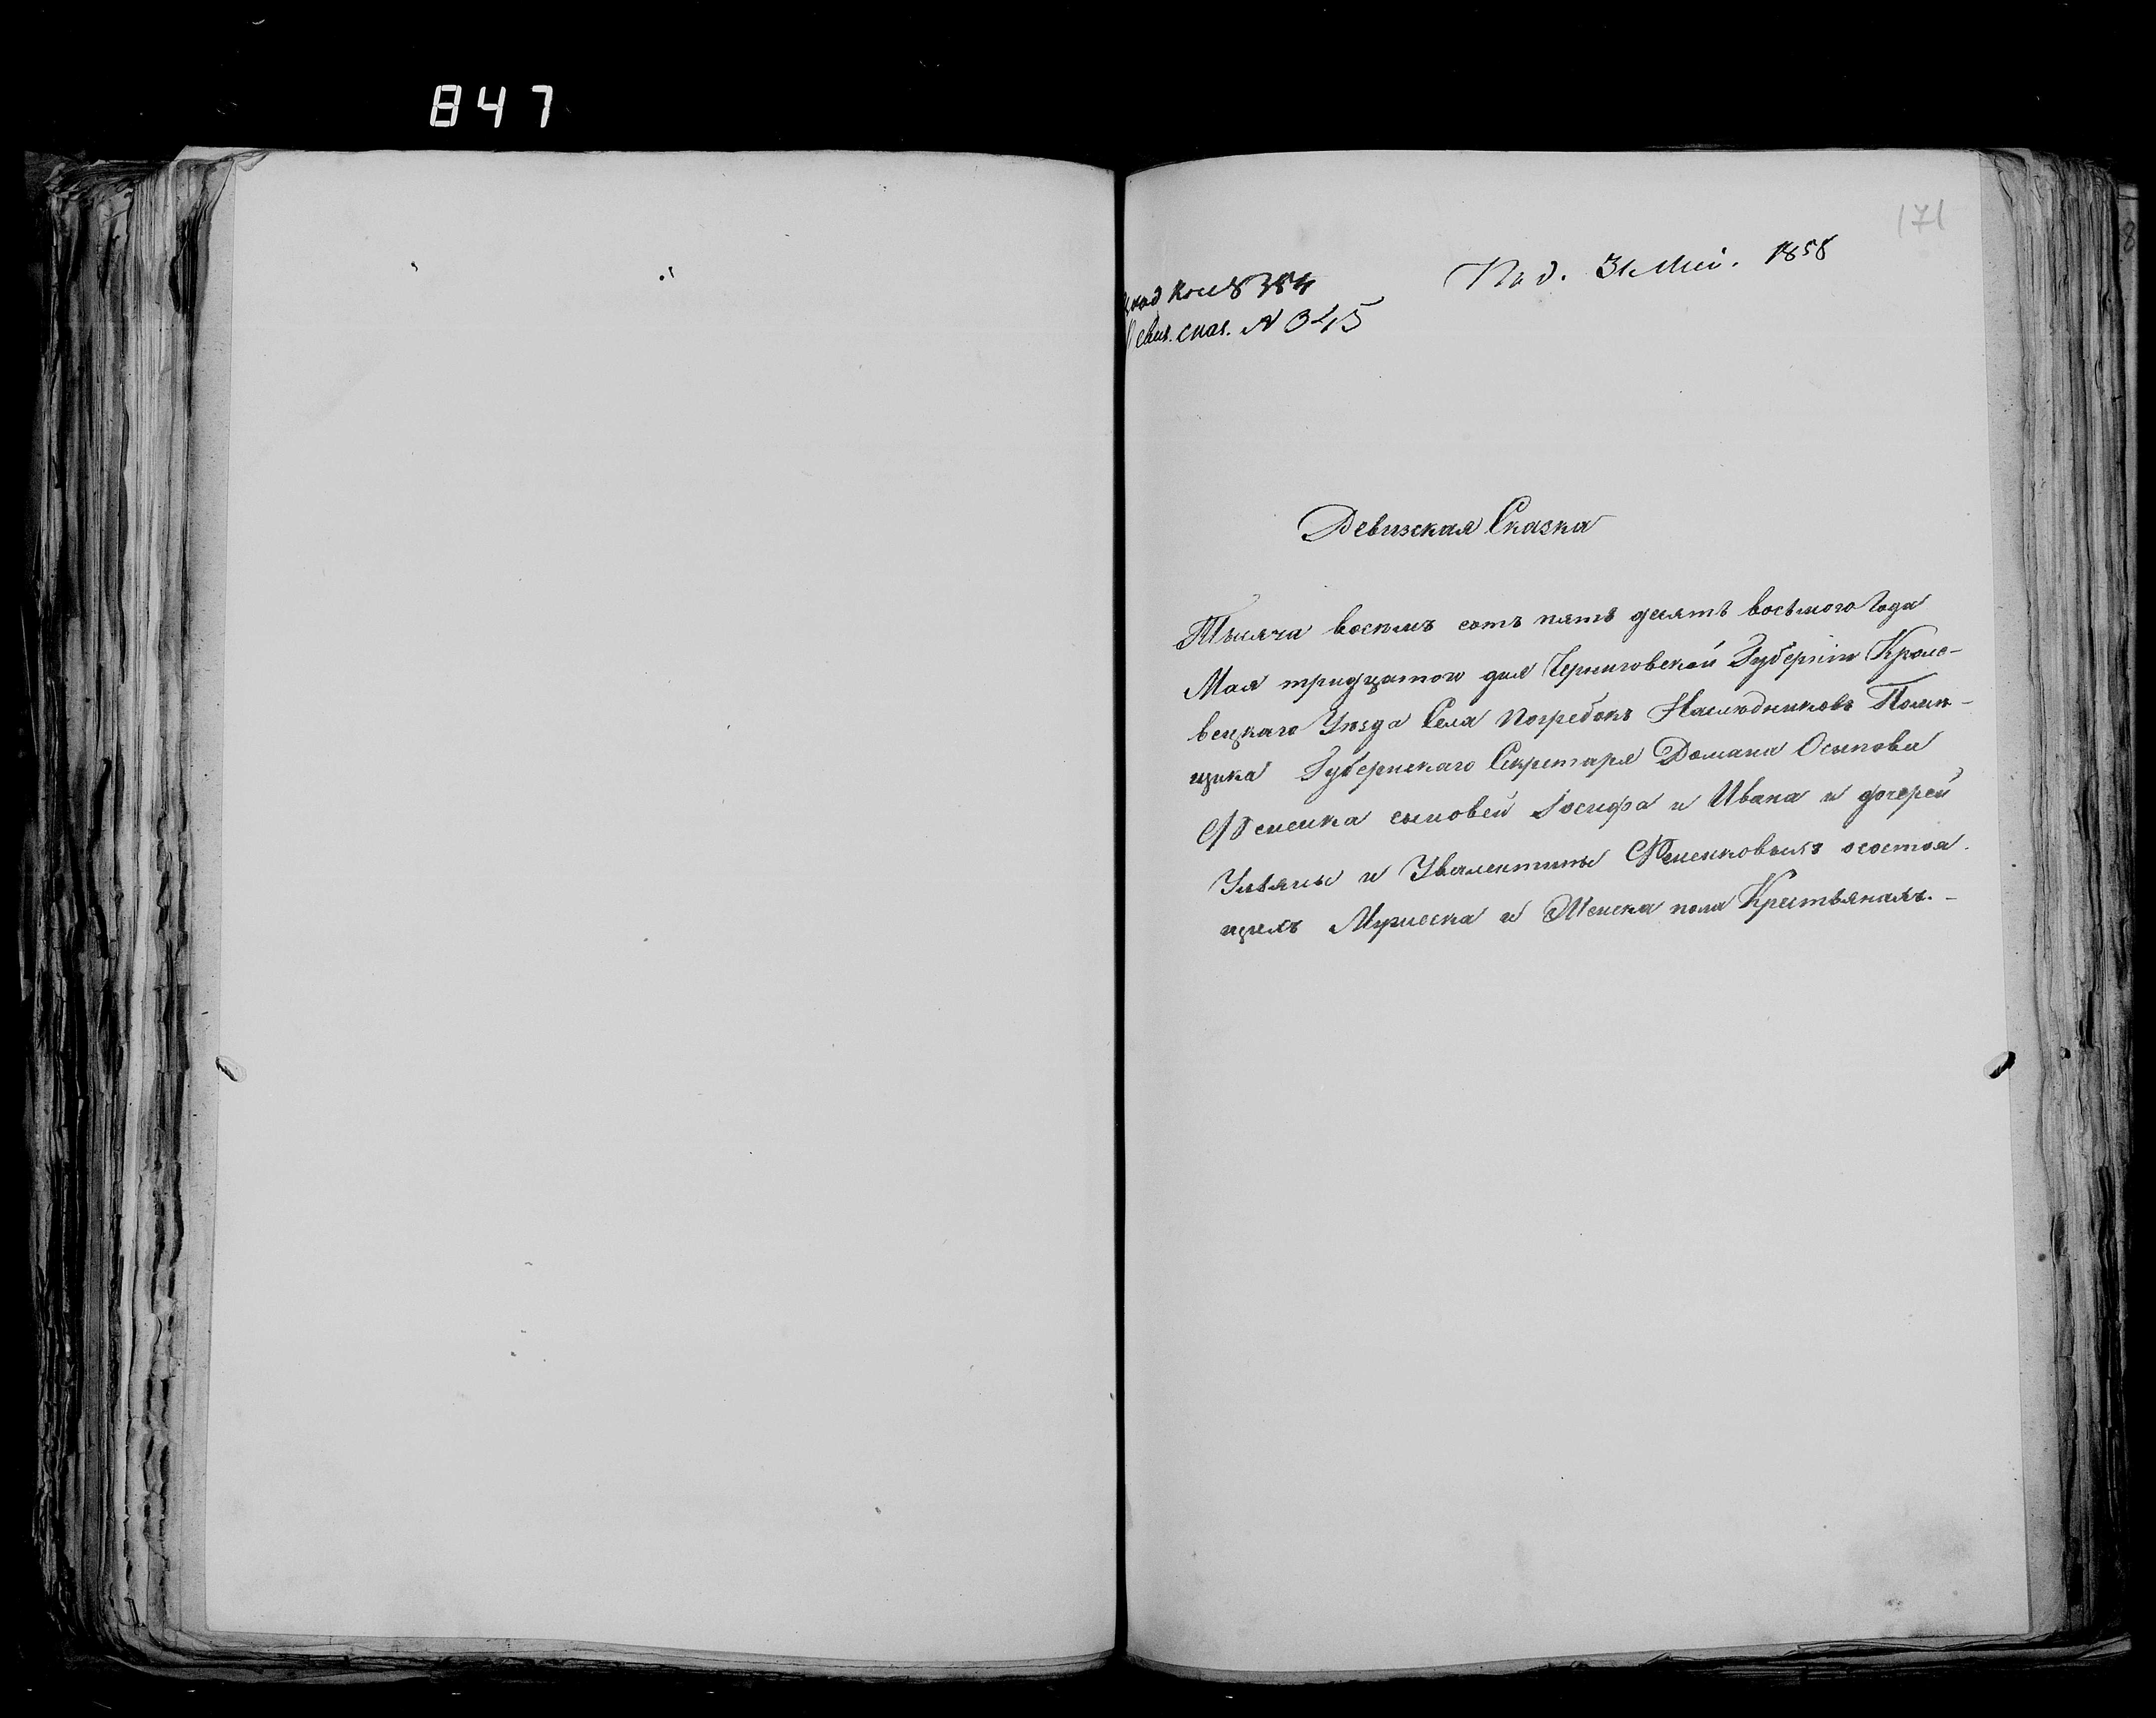 847
171
Под. 31 Мая. 1858
384
Ревиз. сказ. № 345
Ревизская Сказка
Тысяча восемь сотъ пять десятъ восьмого Года
Мая тридцатого дня Черниговской Губерніи Кроле-
вецкаго Уѣзда Села Погребокъ Наслѣдниковъ Помѣ-
щика Губернскаго Секретаря Романа Осипова
сыновей Іосифа и Ивана и дочерей
Ульяны и о состоя
щихъ Мужеска и Женска пола Крестьянахъ.-